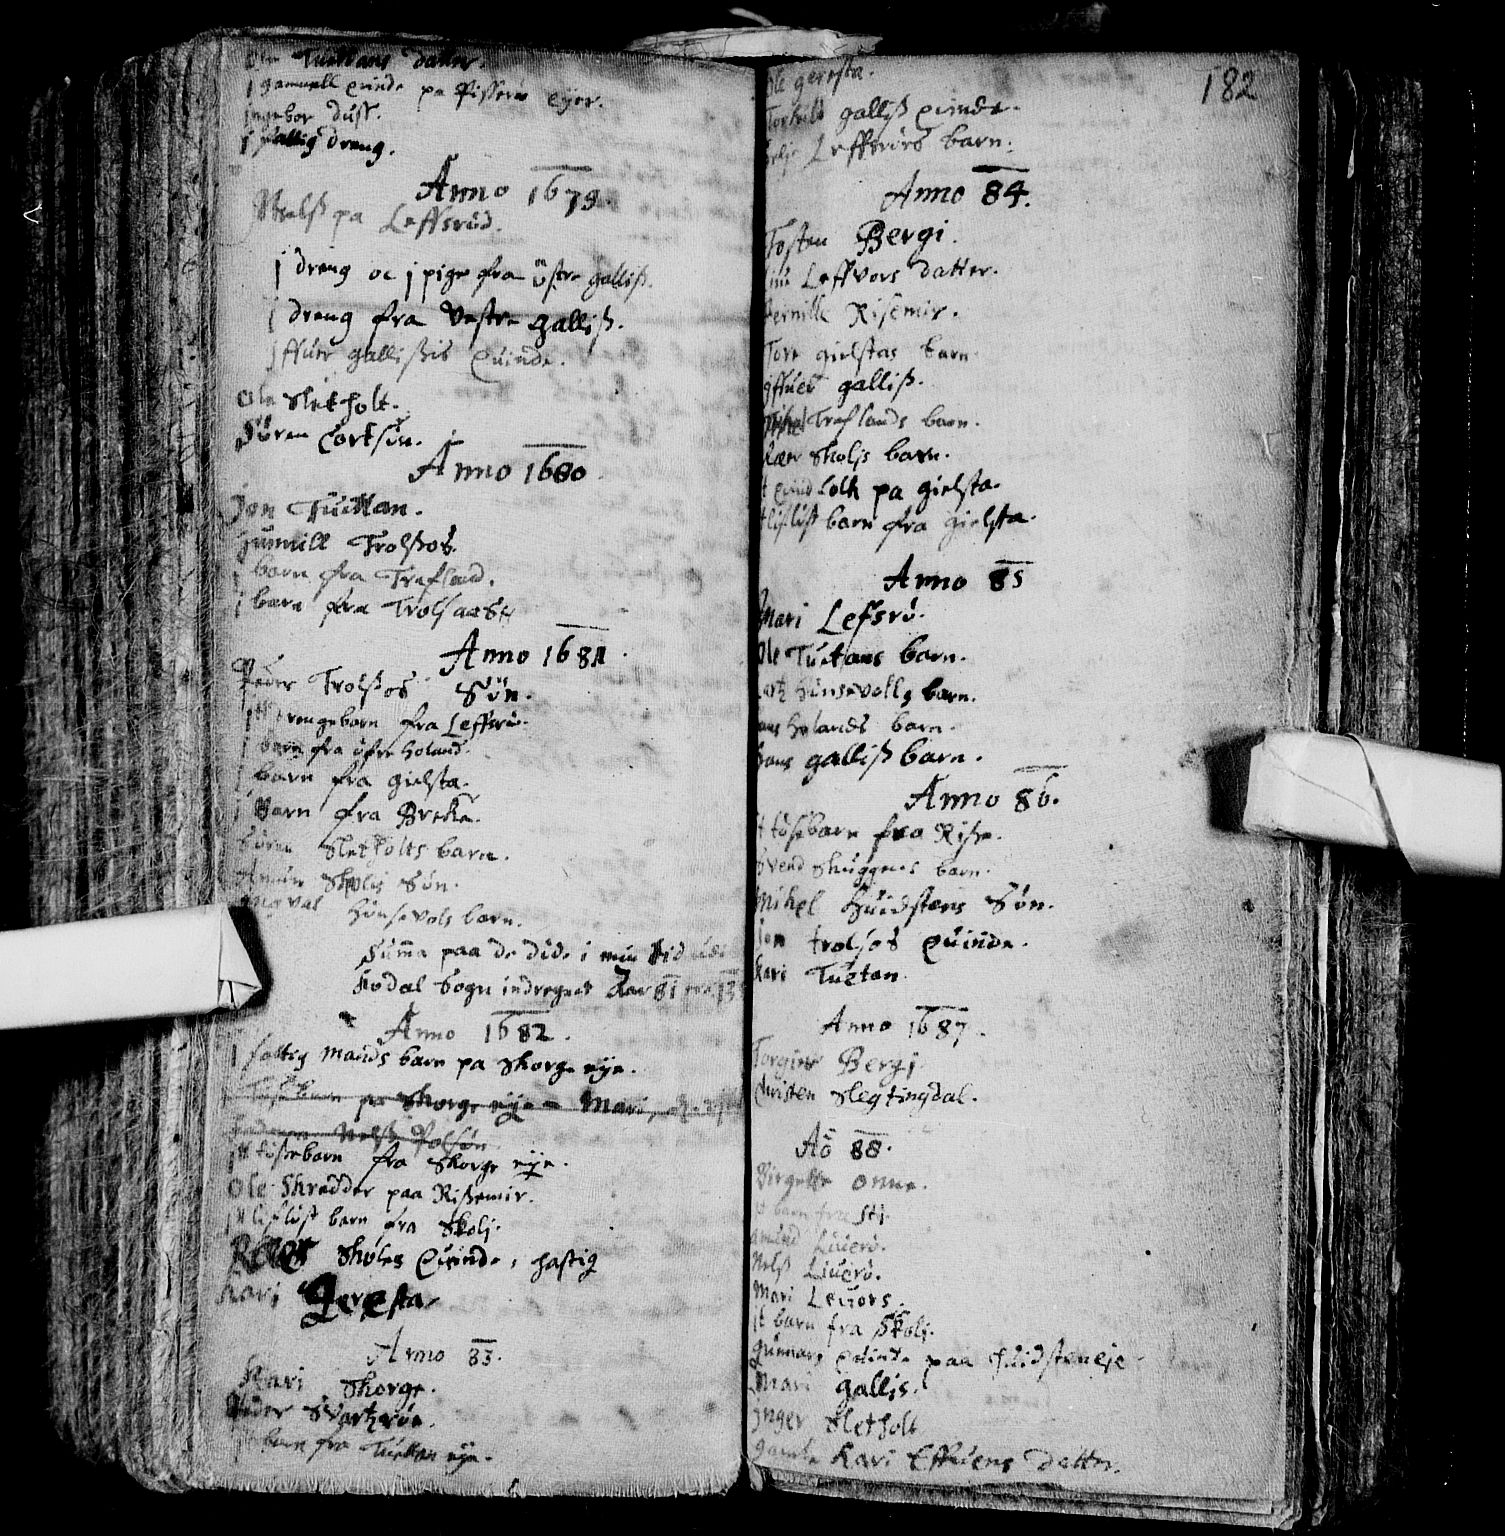 Ole Tuettans datter.
j gammell quinde pa Fisserøe eyer.
Ingebor duss.
j fattig dreng.
Anno 1679.
Nielss pa Leffsrud.
j dreng oc j pige fra östre galliss.
j dreng fra Vestre galliss.
Iffuer gallissis Quinde.
Ole Sletholt.
Sören Cortsön.
Anno 1680.
Jon Tuettan.
Gunnill Trolssos.
j barn fra Trefland.
j barn fra Trolsaas
Anno 1681.
Peder Trolssos Sön.
drengebarn fra Leffsrü.
j barn fra öfre Holand.
j barn fra gielsta.
j Barn fra Brecke.
Sören Sletholts barn.
Amun Skolis Sön.
Hönsevols barn.
Summa paa de döde i min tid
Kodal Sogn indregnet Aar 81
Anno 1682.
j fattig Mands barn pa Skorge eye.
pa Skorge eye Mari
Nelss Polsön
it tösebarn fra Skorge eye.
Ole Skredder paa Rissemir.
it lisslöst barn fra Skoli.
Skoles Quinde, hastig
Kari Geresta.
Anno 83.
Kari Skorge.
Peder Svartzröe.
barn fra Tuettan eye.
182
Ole geresta.
Torkild galliss quinde.
Leffsrörs barn.
Anno 84.
Tosten Bergi.
Leffvors datter.
Pernille Risemir.
Tore gielstas barn.
Iffuer galliss.
Treflands barn.
Skolis barn.
pa gielsta.
lisslöst barn fra gielsta.
Anno 85
Mari Lefsrö.
Ole Tuetans barn.
Hönsevolls barn.
Holands barn.
Hans galliss barn.
Anno 86.
it tösebarn fra Risse.
Svend Skuggenes barn.
Mikel Huidstens Sön.
Jon trolsos Quinde.
Kari Tuetan.
Anno 1687.
Torgier Bergi
Christen Slegtingdal.
Ao 88.
Birgette Onne.
it barn fra Sti.
Amund Liuerö.
Nelss Liuerö.
Mari Leuors.
it barn fra Skoli.
Gunnars quinde paa Huidsteneje
Mari gallis.
Inger Sletholt
gamle Kari Effuens datter.